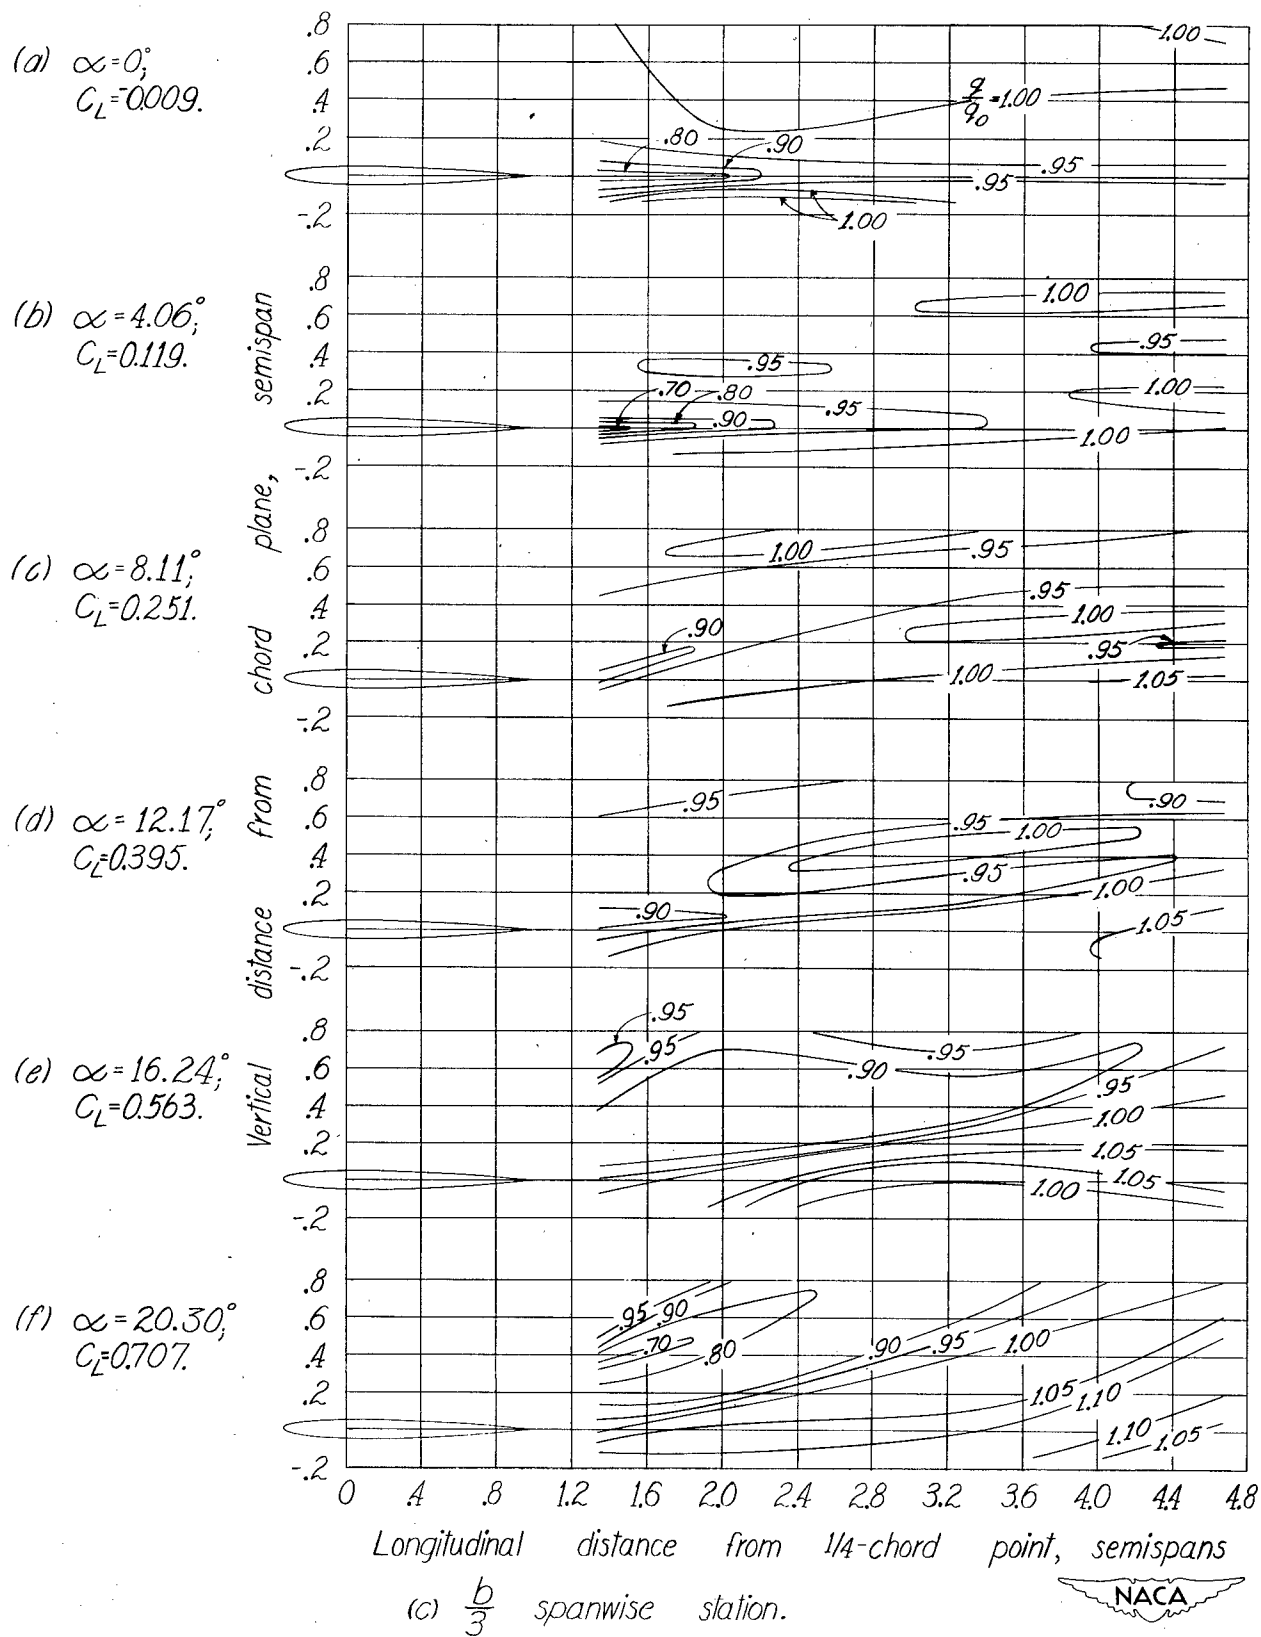 (a) ∝=0°;
C_L=-0.009.
.8
.6
.4
.2
-.2
1.00
q/q₀=1.00
.80
.90
.95
.95
1.00
(b) ∝=4.06°;
C_L=0.119.
.8
.6
.4
.2
-.2
1.00
.95
.95
.70
.80
1.00
.95
.90
1.00
(c) ∝=8.11°;
C_L=0.251.
.8
.6
.4
.2
-.2
1.00
.95
.95
1.00
.90
.95
1.00
1.05
(d) ∝=12.17°;
C_L=0.395.
.8
.6
.4
.2
-.2
.95
.90
.95
1.00
.95
1.00
.90
1.05
(e) ∝=16.24°;
C_L=0.563.
.8
.6
.4
.2
-.2
.95
.95
.95
.90
.95
1.00
1.05
1.05
1.00
(f) ∝=20.30°;
C_L=0.707.
.8
.6
.4
.2
-.2
.95
.90
.70
.80
.90
.95
1.00
1.05
1.10
1.10
1.05
Vertical distance from chord plane, semispan
0 .4 .8 1.2 1.6 2.0 2.4 2.8 3.2 3.6 4.0 4.4 4.8
Longitudinal distance from 1/4-chord point, semispans
(c) b/3 spanwise station.
NACA